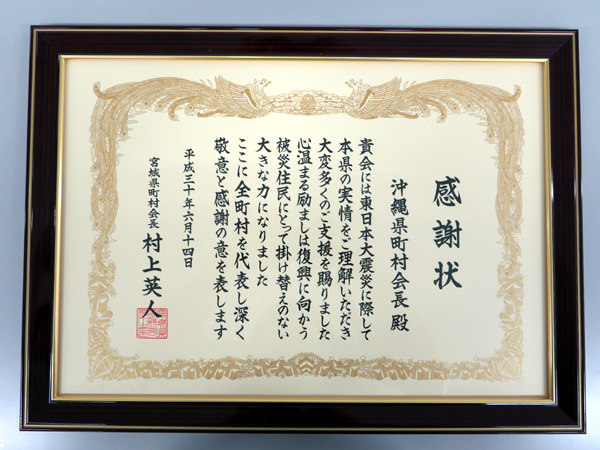 感謝状
沖縄県町村会長 殿
貴会には東日本大震災に際して
本県の実情をご理解いただき
大変多くのご支援を賜りました
心温まる励ましは復興に向かう
被災住民にとって掛け替えのない
大きな力になりました
ここに全町村を代表し深く
敬意と感謝の意を表します
平成三十年六月十四日
宮城県町村会長 村上英人